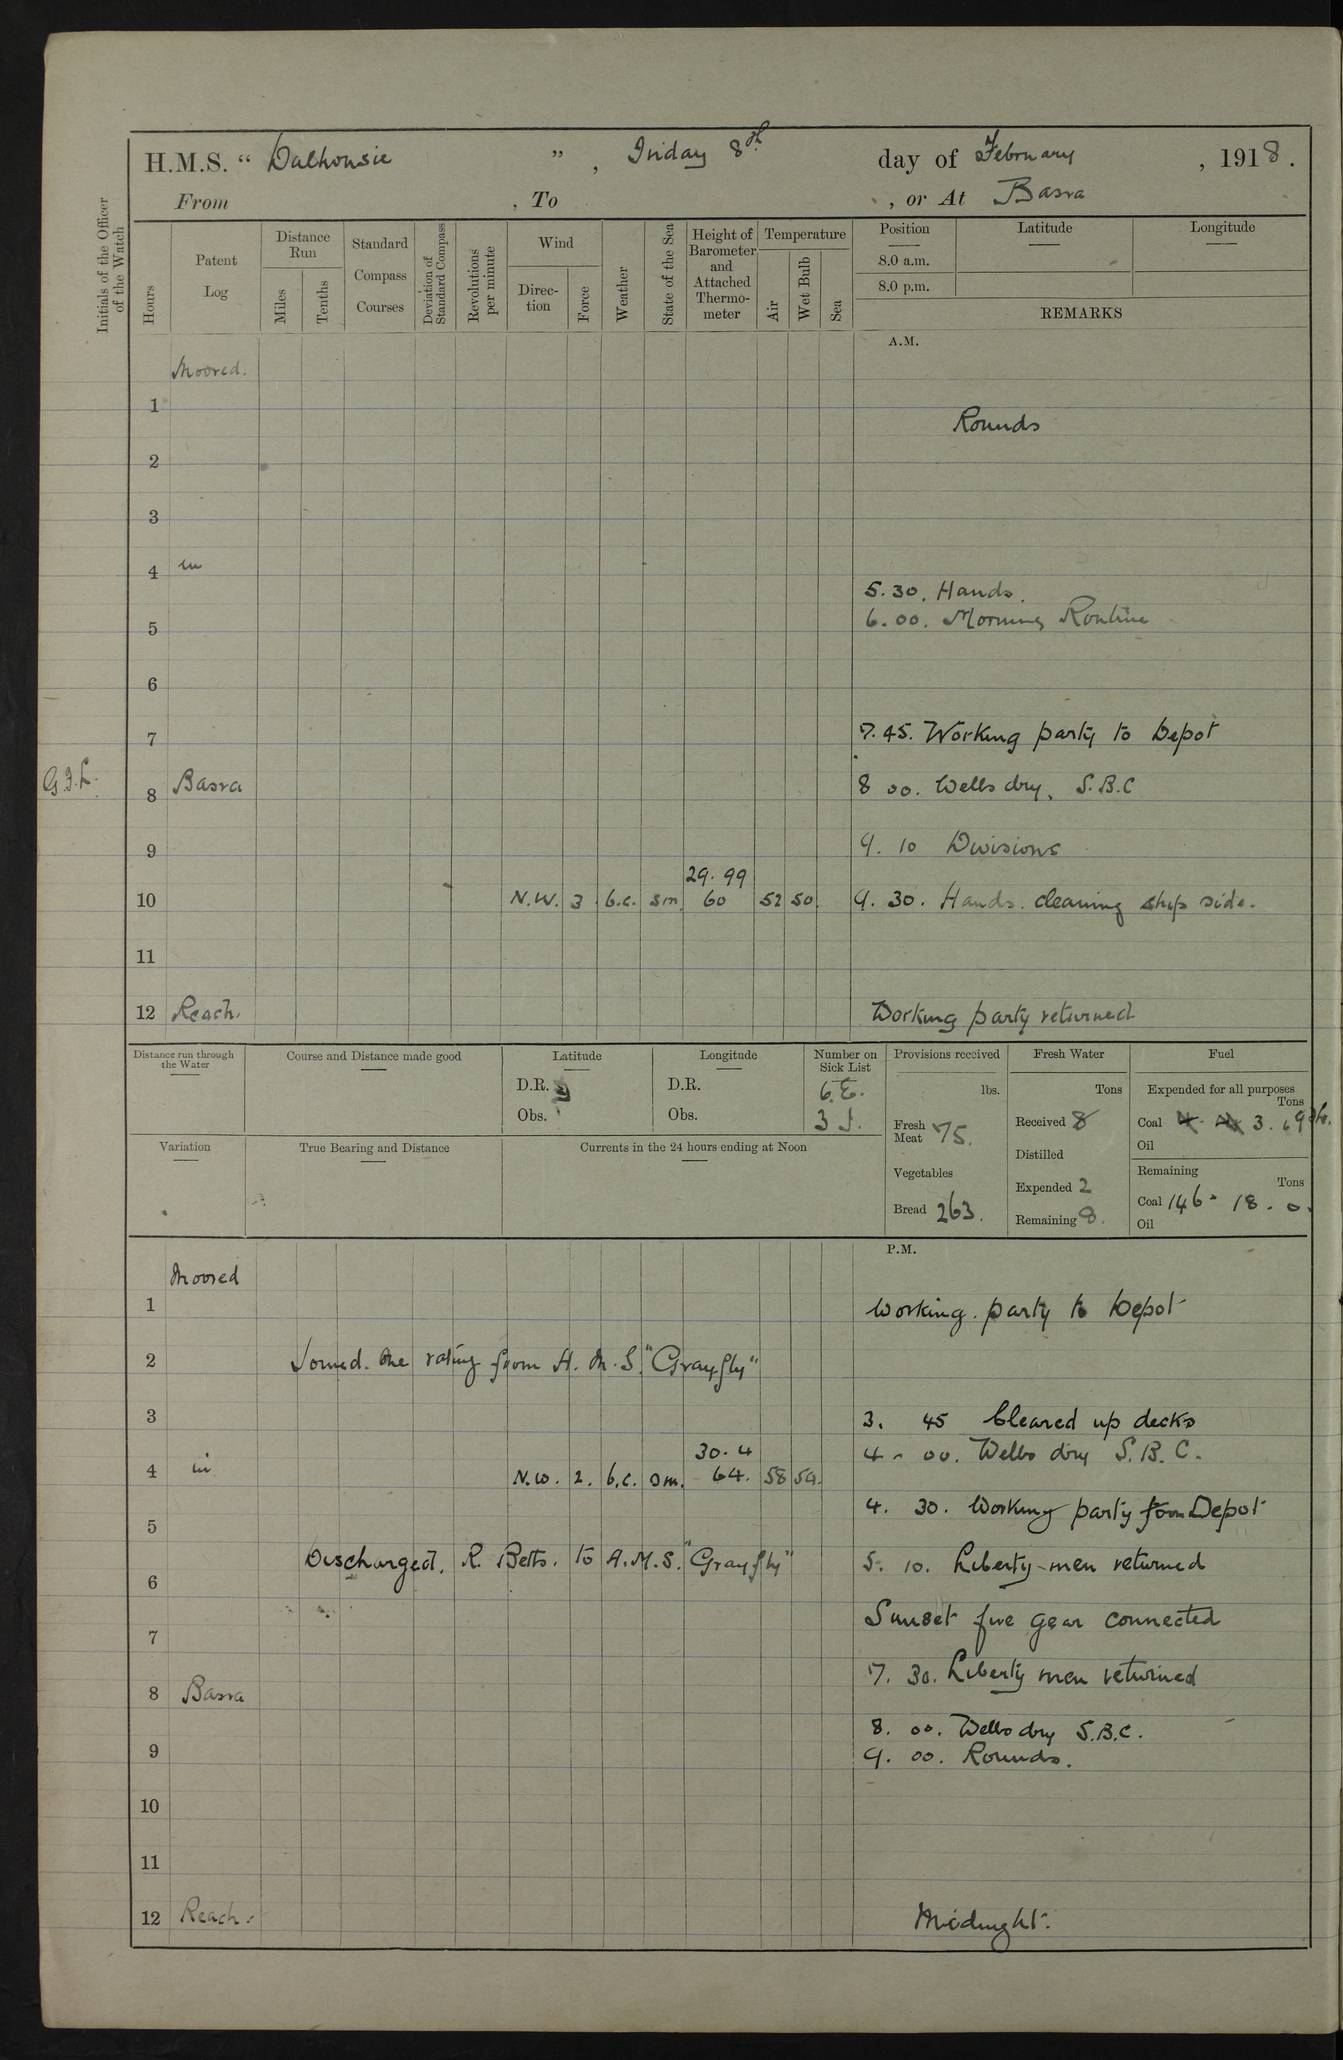 H.M.S. " Dalhousie ", Friday 8th day of February, 1918.
From , To , or At Basra
Initials of the Officer of the Watch
Hours
Patent Log
Distance Run
Miles
Tenths
Standard Compass Courses
Deviation of Standard Compass
Revolutions per minute
Wind
Direction
Force
Weather
State of the Sea
Height of Barometer and Attached Thermometer
Temperature
Air
Wet Bulb
Sea
Position
Latitude
Longitude
8.0 a.m.
8.0 p.m.
REMARKS
A.M.
Moored.
1
Rounds
2
3
4 in
5.30. Hands.
5
6.00. Morning Routine
6
7
7.45. Working party to Depot
G.F.L.
8 Basra
8 00. Wells dry. S.B.C
9
9. 10 Divisions
29.99
10 N.W. 3 b.c. sm. 60 52 50. 9. 30. Hands. cleaning ship side.
11
12 Reach. Working party returned
Distance run through the Water
Course and Distance made good
Latitude
D.R.
Obs.
Longitude
D.R.
Obs.
Number on Sick List
6.E.
3 J.
Provisions received
lbs.
Fresh Meat 75.
Vegetables
Bread 263.
Fresh Water
Tons
Received 8
Distilled
Expended 2
Remaining 8.
Fuel
Expended for all purposes
Tons
Coal 3. 19
Oil
Remaining
Tons
Coal 146. 18. 0.
Oil
Variation
True Bearing and Distance
Currents in the 24 hours ending at Noon
P.M.
Moored
1 Working party to Depot
2 Joined. One rating from H.M.S. "Grayfly"
3
3. 45 Cleared up decks
30.4
4 in N.W. 2. b.c. sm. 64. 58 54.
4 - 00. Wells dry S.B.C.
4. 30. Working party from Depot
5
Discharged. R. Betts. to H.M.S. "Grayfly"
5. 10. Liberty men returned
6
Sunset fire gear connected
7
7. 30. Liberty men returned
8 Basra
8. 00. Wells dry S.B.C.
9
9. 00. Rounds.
10
11
12 Reach. Midnight.